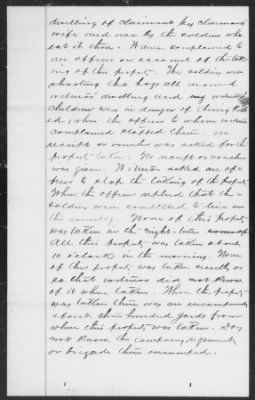 dwelling of claimant by claimant's
wife and was by the soldiers who
eat it thus. Witness complained to
an officer on account of the tak
ing of this property. The soldiers were
shooting the hogs all around
witness' dwelling and my
children was in danger of being kill
ed when the officer to whom witness
complained stopped them. no
receipt or voucher was asked for the
property taken. No receipt or voucher
was given. Witness asked an of-
ficer to stop the taking of the property
When the officer replied that the
soldiers were compelled to live on
the country. None of this property
was taken in the night-time
All this property was taken about
10 o'clock in the morning. None
of this property was taken secretly or
so that witness did not know
of it when taken. When the property
was taken there was an encampment
about three hundred yards from
where this property was taken. Does
not know the company regiment
or brigade then encamped.